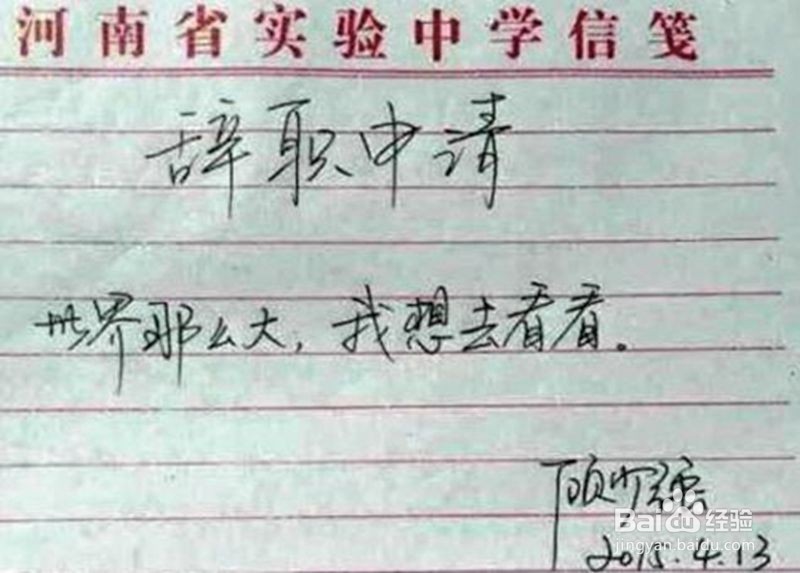 河南省实验中学信笺
辞职申请
世界那么大,我想去看看。
顾少强
2015.4.13
Baidu经验
jingyan.baidu.com